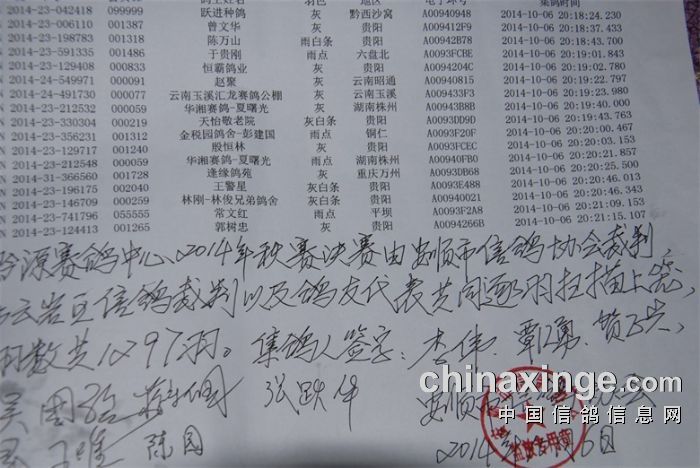 2014-23-042418 099999 跃进种鸽 灰 黔西沙窝 A00940948 2014-10-06 20:18:24.230
2014-23-006110 001387 曾文华 灰 贵阳 A009412F9 2014-10-06 20:18:37.700
2014-23-191108 001338 陈万山 雨白条 贵阳 A00942B78 2014-10-06 20:18:43.700
2014-23-591335 001486 于贵刚 雨点 六盘北 A0093FCBE 2014-10-06 20:19:01.843
2014-23-129408 000833 恒霸鸽业 灰 贵阳 A0094204C 2014-10-06 20:19:02.780
2014-24-549971 000091 赵聚 灰 云南昭通 A00940815 2014-10-06 20:19:22.797
2014-24-491730 000077 云南玉溪汇龙赛鸽公棚 灰 A009433F3 2014-10-06 20:19:23.980
2014-23-212532 000059 华湘赛鸽-夏曙光 灰 湖南株州 A00943B8B 2014-10-06 20:19:40.000
2014-23-330304 000219 天怡敬老院 灰白条 贵阳 A0093DD9D 2014-10-06 20:19:43.763
2014-23-356231 001312 金税园鸽舍-彭建国 雨点 铜仁 A0093F20F 2014-10-06 20:20:00.467
2014-23-129717 001240 殷恒林 灰 贵阳 A0093FCEC 2014-10-06 20:20:03.170
2014-23-212548 000059 华湘赛鸽-夏曙光 雨点 湖南株州 A00940FB0 2014-10-06 20:20:21.857
2014-31-366560 001728 逢缘鸽苑 灰 重庆万州 A0093DB68 2014-10-06 20:20:25.500
2014-23-196175 002040 王警星 灰白条 贵阳 A0093E488 2014-10-06 20:20:46.013
2014-23-146709 000259 林刚-林俊兄弟鸽舍 灰白条 贵阳 A00940021 2014-10-06 20:20:46.343
2014-23-741796 055555 常文红 雨点 平坝 A0093F2A8 2014-10-06 20:21:09.153
2014-23-124413 001265 郭树忠 灰 贵阳 A0094266B 2014-10-06 20:21:15.107
源赛鸽中心2014年秋赛决赛由安顺市信鸽协会裁判,
云岩区信鸽裁判以及鸽友代表共同逐羽扫描上笼,
羽数共1297羽。集鸽人签字:李伟、
张跃华
陈园
2014年 6日
chinaxinge.com
中国信鸽信息网